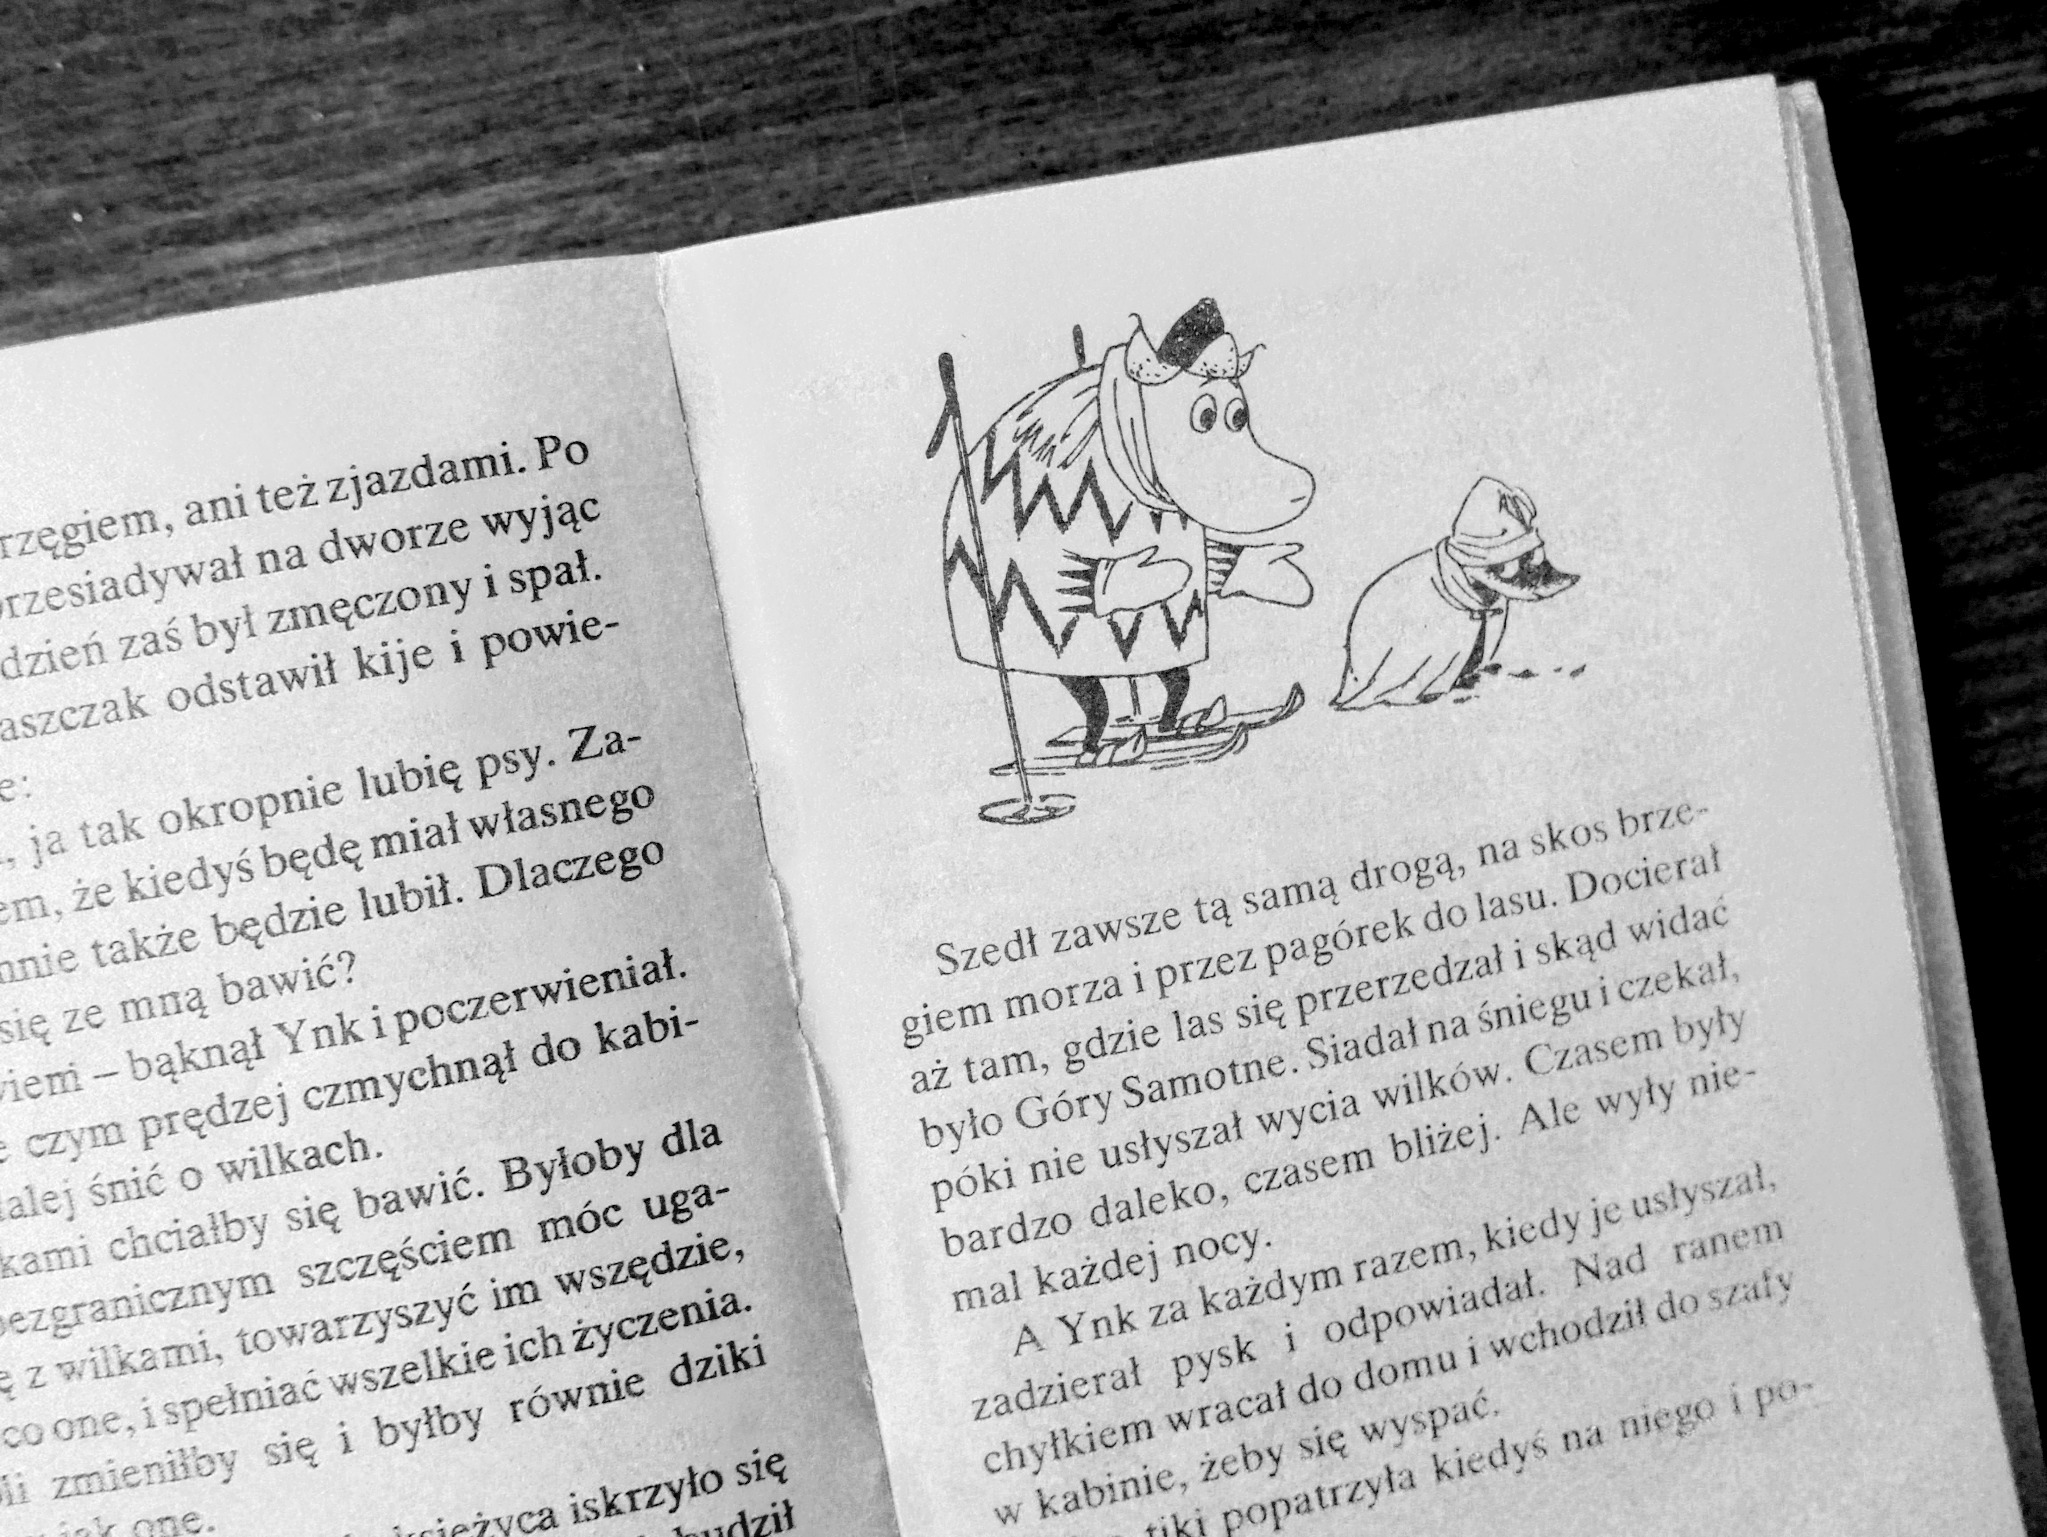 ani też zjazdami. Po
na dworze wyjąc
dzień zaś był zmęczony i spał.
odstawił kije i powie-
ja tak okropnie lubię psy. Za-
że kiedyś będę miał własnego
także będzie lubił. Dlaczego
się ze mną bawić?
– bąknął Ynk i poczerwieniał.
czym prędzej czmychnął do kabi-
śnić o wilkach.
chciałby się bawić. Byłoby dla
bezgranicznym szczęściem móc uga-
z wilkami, towarzyszyć im wszędzie,
co one, i spełniać wszelkie ich życzenia.
zmieniłby się i byłby równie dziki
jak one.
księżyca iskrzyło się
Szedł zawsze tą samą drogą, na skos brze-
giem morza i przez pagórek do lasu. Docierał
aż tam, gdzie las się przerzedzał i skąd widać
było Góry Samotne. Siadał na śniegu i czekał,
póki nie usłyszał wycia wilków. Czasem były
bardzo daleko, czasem bliżej. Ale wyły nie-
mal każdej nocy.
A Ynk za każdym razem, kiedy je usłyszał,
zadzierał pysk i odpowiadał. Nad ranem
chyłkiem wracał do domu i wchodził do szafy
w kabinie, żeby się wyspać.
popatrzyła kiedyś na niego i po-